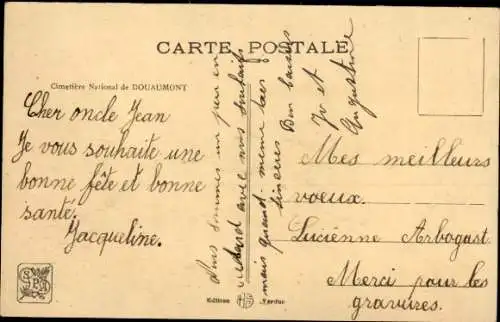 CARTE POSTALE
Cimetière National de DOUAUMONT
Cher oncle Jean
Je vous souhaite une
bonne fête et bonne
santé.
Jacqueline.
Nous sommes un peu en
retard avec nos souhaits
mais quand-même très
sincères Bon baisers
Jo et
Augustine
Mes meilleurs
voeux.
Luciénne Arbogast
Merci pour les
gravures.
Editions Verdun